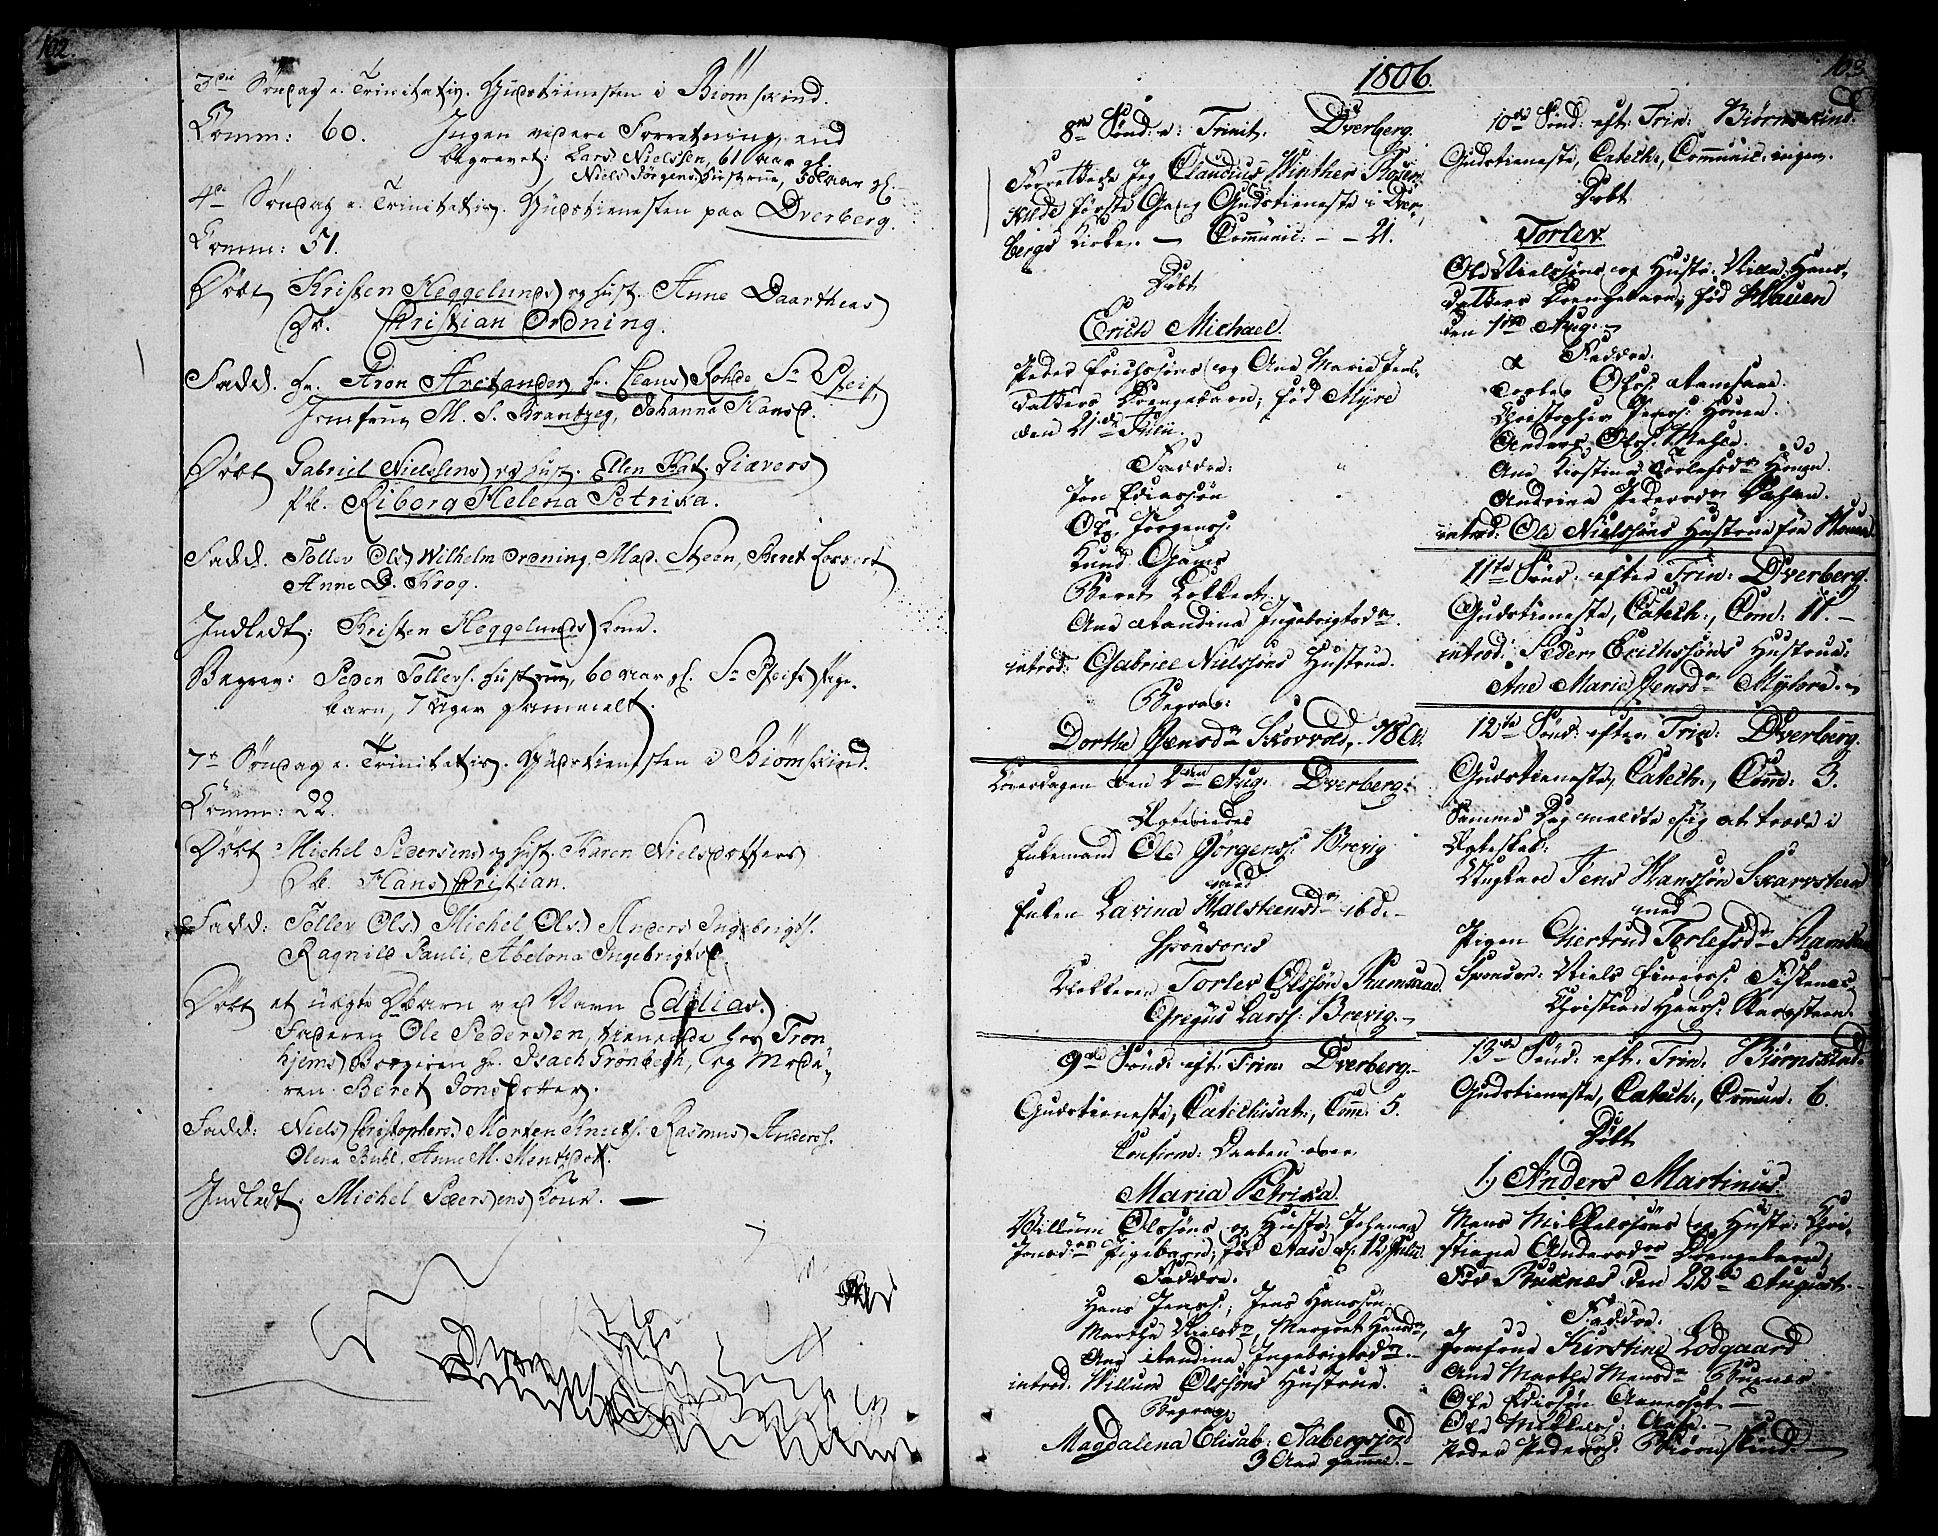 102.
3die Søndag e. Trinitatis. Gudstienesten i Biørnskind.
Comm: 60. Ingen videre Forretning, end
begravet: Lars Nielssen, 61 aar gl.
Niels Jørgens. Hustrue, aar gl.
4de Søndag e. Trinitatis. Gudstienesten paa Dverberg.
Comm: 51.
Døbt Kristen Heggelunds og Hust. Anne Daartheas
Db. Christian Ordning.
Fadd. Hr. Aron Arctander, Hr. Claus Rohde, Sr Pleis,
Jomfrue M. S. Krantzeg, Johanna Hansd.
Døbt Gabriel Nielsens og Hust. Ellen Kat. Giævers
Pb. Riborg Helena Petrika.
Fadd. Toller Ols. Wilhelm Ordning, Mad. Steen, Beret Lockert
Anne D. Krog.
Indledt: Kristen Heggelunds Kone.
Begrav: Peder Tollers. Hustrue, 60 aar gl. Sr Pleis Pige-
barn, 7 Uger gammelt.
7de Søndag e. Trinitatis. Gudstienesten i Biørnskind.
Comm: 22.
Døbt Michel Pedersens og Hust. Karen Nielsdotters
Db. Hans Christian.
Fadd: Toller Ols. Michel Ols. Anders Ingebrigts.
Ragnild Pauli, Abelona Ingebrigtsd.
Døbt et uægte Dbarn ved Navn Eddias.
Faderen Ole Pedersen, tienende hos Tron-
hjems Borgeren Hr. Isach Grønbech, og Mode-
ren Beret Jonsdotter.
Fadd: Niels Christophers. Morten Knuts. Rasmus Anderss.
Olena Buhl, Anne M. Mentzdot.
Indledt: Michel Pedersens Kone. —
1806.
8de Sønd: e: Trinit. Dverberg.
Forrettede Jeg Claudius Winther Rosen-
kilde første Gang Gudstieneste i Dver-
bergs Kirke. — Communic: — 21.
Døbt
Erich Michael.
Peder Erichssøns og Ane Marie Jens-
datters Drengebarn; fød Myre
den 21de Julii.
Faddre:
Jon Ediassøn
Ole Jørgenss.
Knud
Beret Lokkert.
Ane Andina Ingebrigtsdr.
introd: Gabriel Nielssøns Hustrue.
Begrav:
Dorthe Jensdr Skovvold, 78 A.
Løverdagen den 2den Aug. Dverberg:
Ægteviedes
Enkemand Ole Jørgenss. Brevig
med
Enken Lavina Halsteensdr ibd. —
Sponsores
Klokkeren Torlev Olssøn Ramsaae.
Gregus Larss: Brevig. —
9de Sønd: eft: Trin: Dverberg. —
Gudstieneste, Catechisat:, Com: 5.
Confirm: Daaben over
Maria Petrika.
Willum Olssøns og Hustr. Johanna
Jonsdrs Pigebarn; fød Aase d. 12 Julii.
Faddre.
Hans Jenss:, Jens Hanssøn.
Marthe Nielsdr, Margret Hansdr,
Ane Andina Ingebrigtsdr. —
introd. Willum Olssøns Hustrue.
Begrav:
Magdalena Elisab: Aabergsjord
3 Aar gamel. —
103
10de Sønd: eft: Trin: Biørnskind.
Gudstieneste, Catech:, Communic: ingen.
Døbt
Torlev
Ole Nielssøns og Hustr. Nilla Hans-
datters Drengebarn; fød Hauen
den 1ste Aug. —
Faddre.
Torlev Olss: Ramsaae.
Christopher Jenss: Houen.
Anders Olss: Mehle.
Ane Kirstina Torlefsdr Houen.
Andrina Pedersdr
introd: Ole Nielssøns Hustrue fra Houen
11te Sønd: efter Trin: Dverberg.
Gudstieneste, Catech:, Com: 11. —
introd: Peder Erichssøns Hustrue:
Ane Marie Jensdr Myhre. —
12te Sønd: efter Trin: Dverberg.
Gudstieneste, Catech:, Com: 3.
Samme Dag meldte sig at træde i
Ægteskab:
Ungkarl Jens Hanssøn Skarvsteen
med
Pigen Giertrud Torlefsdr Ramsaae
Sponsor: Niels Einerss: Fiskenes,
Christian Hanss: Skarvsteen.
13de Sønd: eft: Trin: Biørnskind.
Gudstieneste, Catech:, Commun: 6.
Døbt
1, Anders Martinus.
Mons Mikkelssøns og Hustr: Chri-
stiana Andersdrs Drengebarn;
fød Buknes den 22de August. —
Faddre.
Jomfrue Kirstine Lodgaard
Ane Marthe Monsdr Buknes
Ole Ediassøn
Ole Mikkelss: Aase. —
Peder Pederss: Biørnskind. —